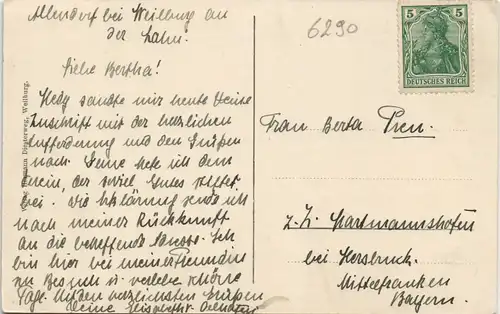 Allendorf bei Weilburg an
der Lahn.
Liebe Bertha!
Hedy sandte mir heute Deine
Zuschrift mit der herzlichen
Aufforderung und den Grüßen
nach. Gerne trete ich dem
Verein, der soviel Gutes stiftet
bei. Die Erklärung sende ich
nach meiner Rückkunft
an die betreffende Adresse. Ich
bin hier bei meiner Freundin
zu Besuch u. verlebe schöne
Tage. Mit den herzlichsten Grüßen
Deine Elisabeth
Hermann Diesterweg, Weilburg.
6290
5 5
DEUTSCHES REICH
Frau Berta Pren.
z. Z. Hartmannshofen
bei Hersbruck.
Mittelfranken
Bayern.